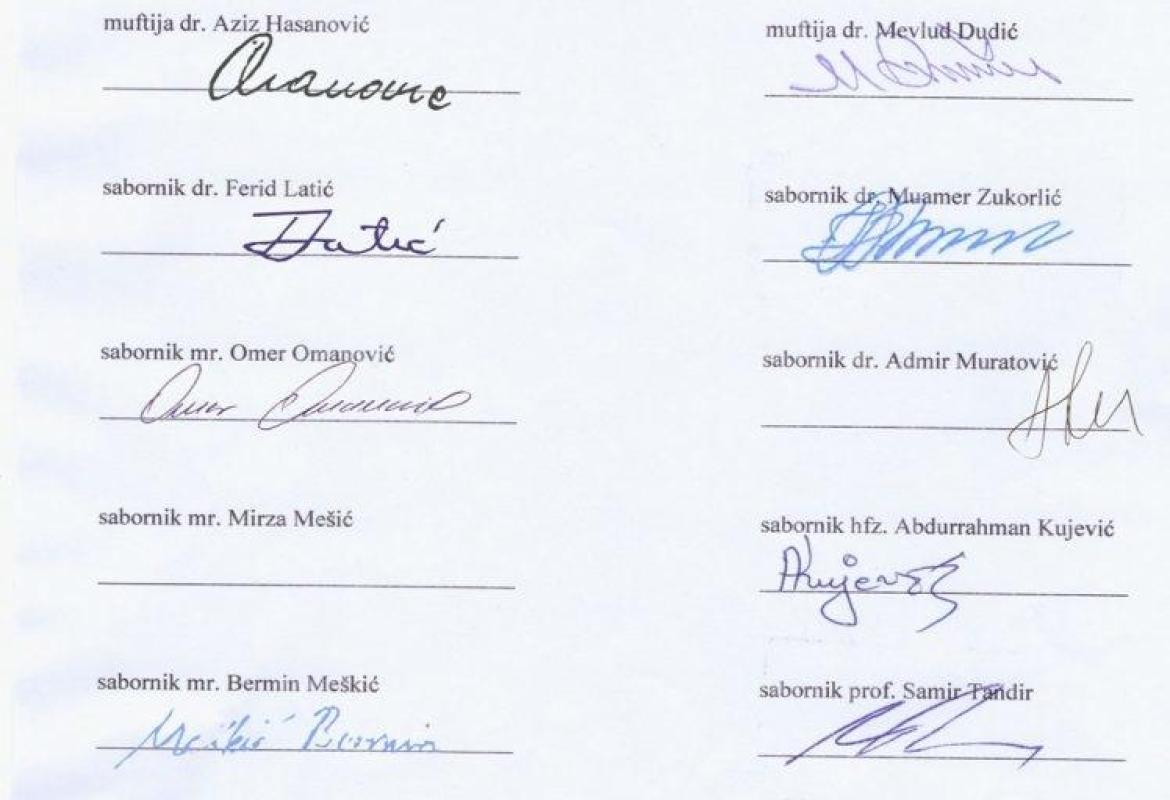 muftija dr. Aziz Hasanović
muftija dr. Mevlud Dudić
sabornik dr. Ferid Latić
Latić
sabornik dr. Muamer Zukorlić
sabornik mr. Omer Omanović
Omer Omanović
sabornik dr. Admir Muratović
sabornik mr. Mirza Mešić
sabornik hfz. Abdurrahman Kujević
AKujević
sabornik mr. Bermin Meškić
Meškić Bermin
sabornik prof. Samir Tandir